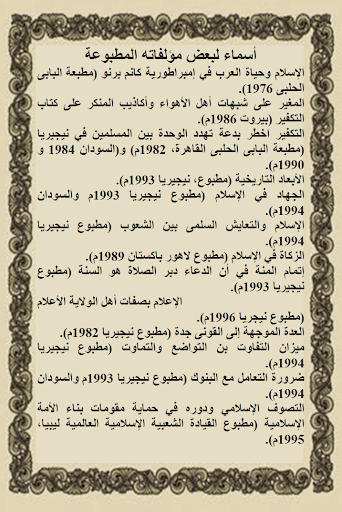 أسماء لبعض مؤلفاته المطبوعة
الإسلام وحياة العرب في إمبراطورية كانم برنو (مطبعة البابى
الحلبى 1976).
المغير على شبهات أهل الأهواء وأكاذيب المنكر على كتاب
التكفير (بيروت 1986م).
التكفير اخطر بدعة تهدد الوحدة بين المسلمين في نيجيريا
(مطبعة البابى الحلبى القاهرة، 1982م) و(السودان 1984 و
1990م).
الأبعاد التاريخية (مطبوع، نيجيريا 1993م).
الجهاد في الإسلام (مطبوع نيجيريا 1993م والسودان
1994م).
الإسلام والتعايش السلمى بين الشعوب (مطبوع نيجيريا
1994م).
الزكاة في الإسلام (مطبوع لاهور باكستان 1989م).
إتمام المنة في أن الدعاء دبر الصلاة هو السنة (مطبوع
نيجيريا 1993م).
الإعلام بصفات أهل الولاية الأعلام
(مطبوع نيجريا 1996م).
العدة الموجهة إلى القونى جدة (مطبوع نيجيريا 1982م).
ميزان التفاوت بن التواضع والتماوت (مطبوع نيجيريا
1994م).
ضرورة التعامل مع البنوك (مطبوع نيجيريا 1993م والسودان
1994م).
التصوف الإسلامي ودوره في حماية مقومات بناء الأمة
الإسلامية (مطبوع القيادة الشعبية الإسلامية العالمية ليبيا،
1995م).